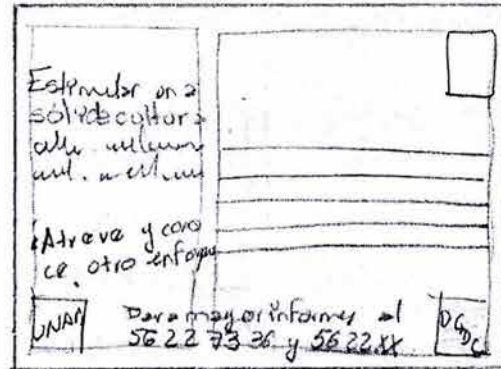 Estimular una
sólida cultura
Atreve y cono
ce. otro enfoque
UNAM
Para mayor informes al
56 22 73 36 y 56 22 XX
DGDC